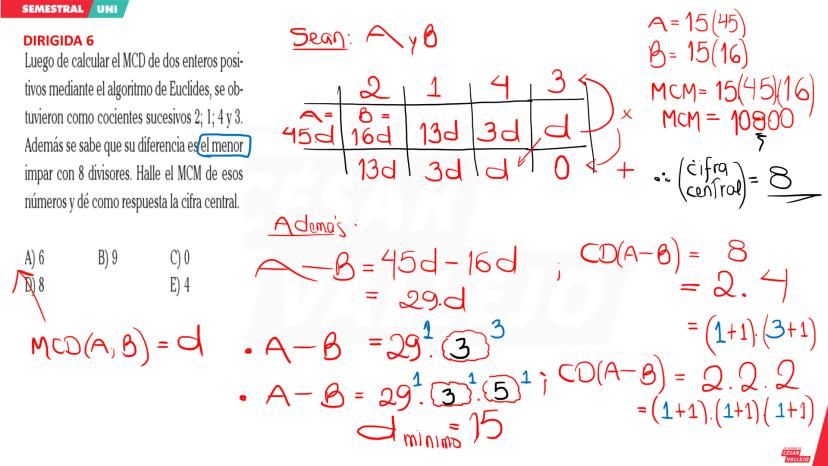 SEMESTRAL UNI
DIRIGIDA 6
Luego de calcular el MCD de dos enteros posi-
tivos mediante el algoritmo de Euclides, se ob-
tuvieron como cocientes sucesivos 2; 1; 4 y 3.
Además se sabe que su diferencia es el menor
impar con 8 divisores. Halle el MCM de esos
números y dé como respuesta la cifra central.
A) 6 B) 9 C) 0
D) 8 E) 4
MCD(A,B) = d
Sean: A y B
2 1 4 3
A= B=
45d 16d 13d 3d d x
13d 3d d 0 +
Además:
A-B = 45d - 16d ; CD(A-B) = 8
= 29.d = 2.4
= (1+1).(3+1)
• A-B = 29¹. 3³
• A-B = 29¹. 3¹. 5¹ ; CD(A-B) = 2.2.2
= (1+1).(1+1)(1+1)
d mínimo = 15
A = 15(45)
B = 15(16)
MCM = 15(45)(16)
MCM = 10800
∴ (cifra central) = 8
CESAR
VALLEJO
CESAR
VALLEJO